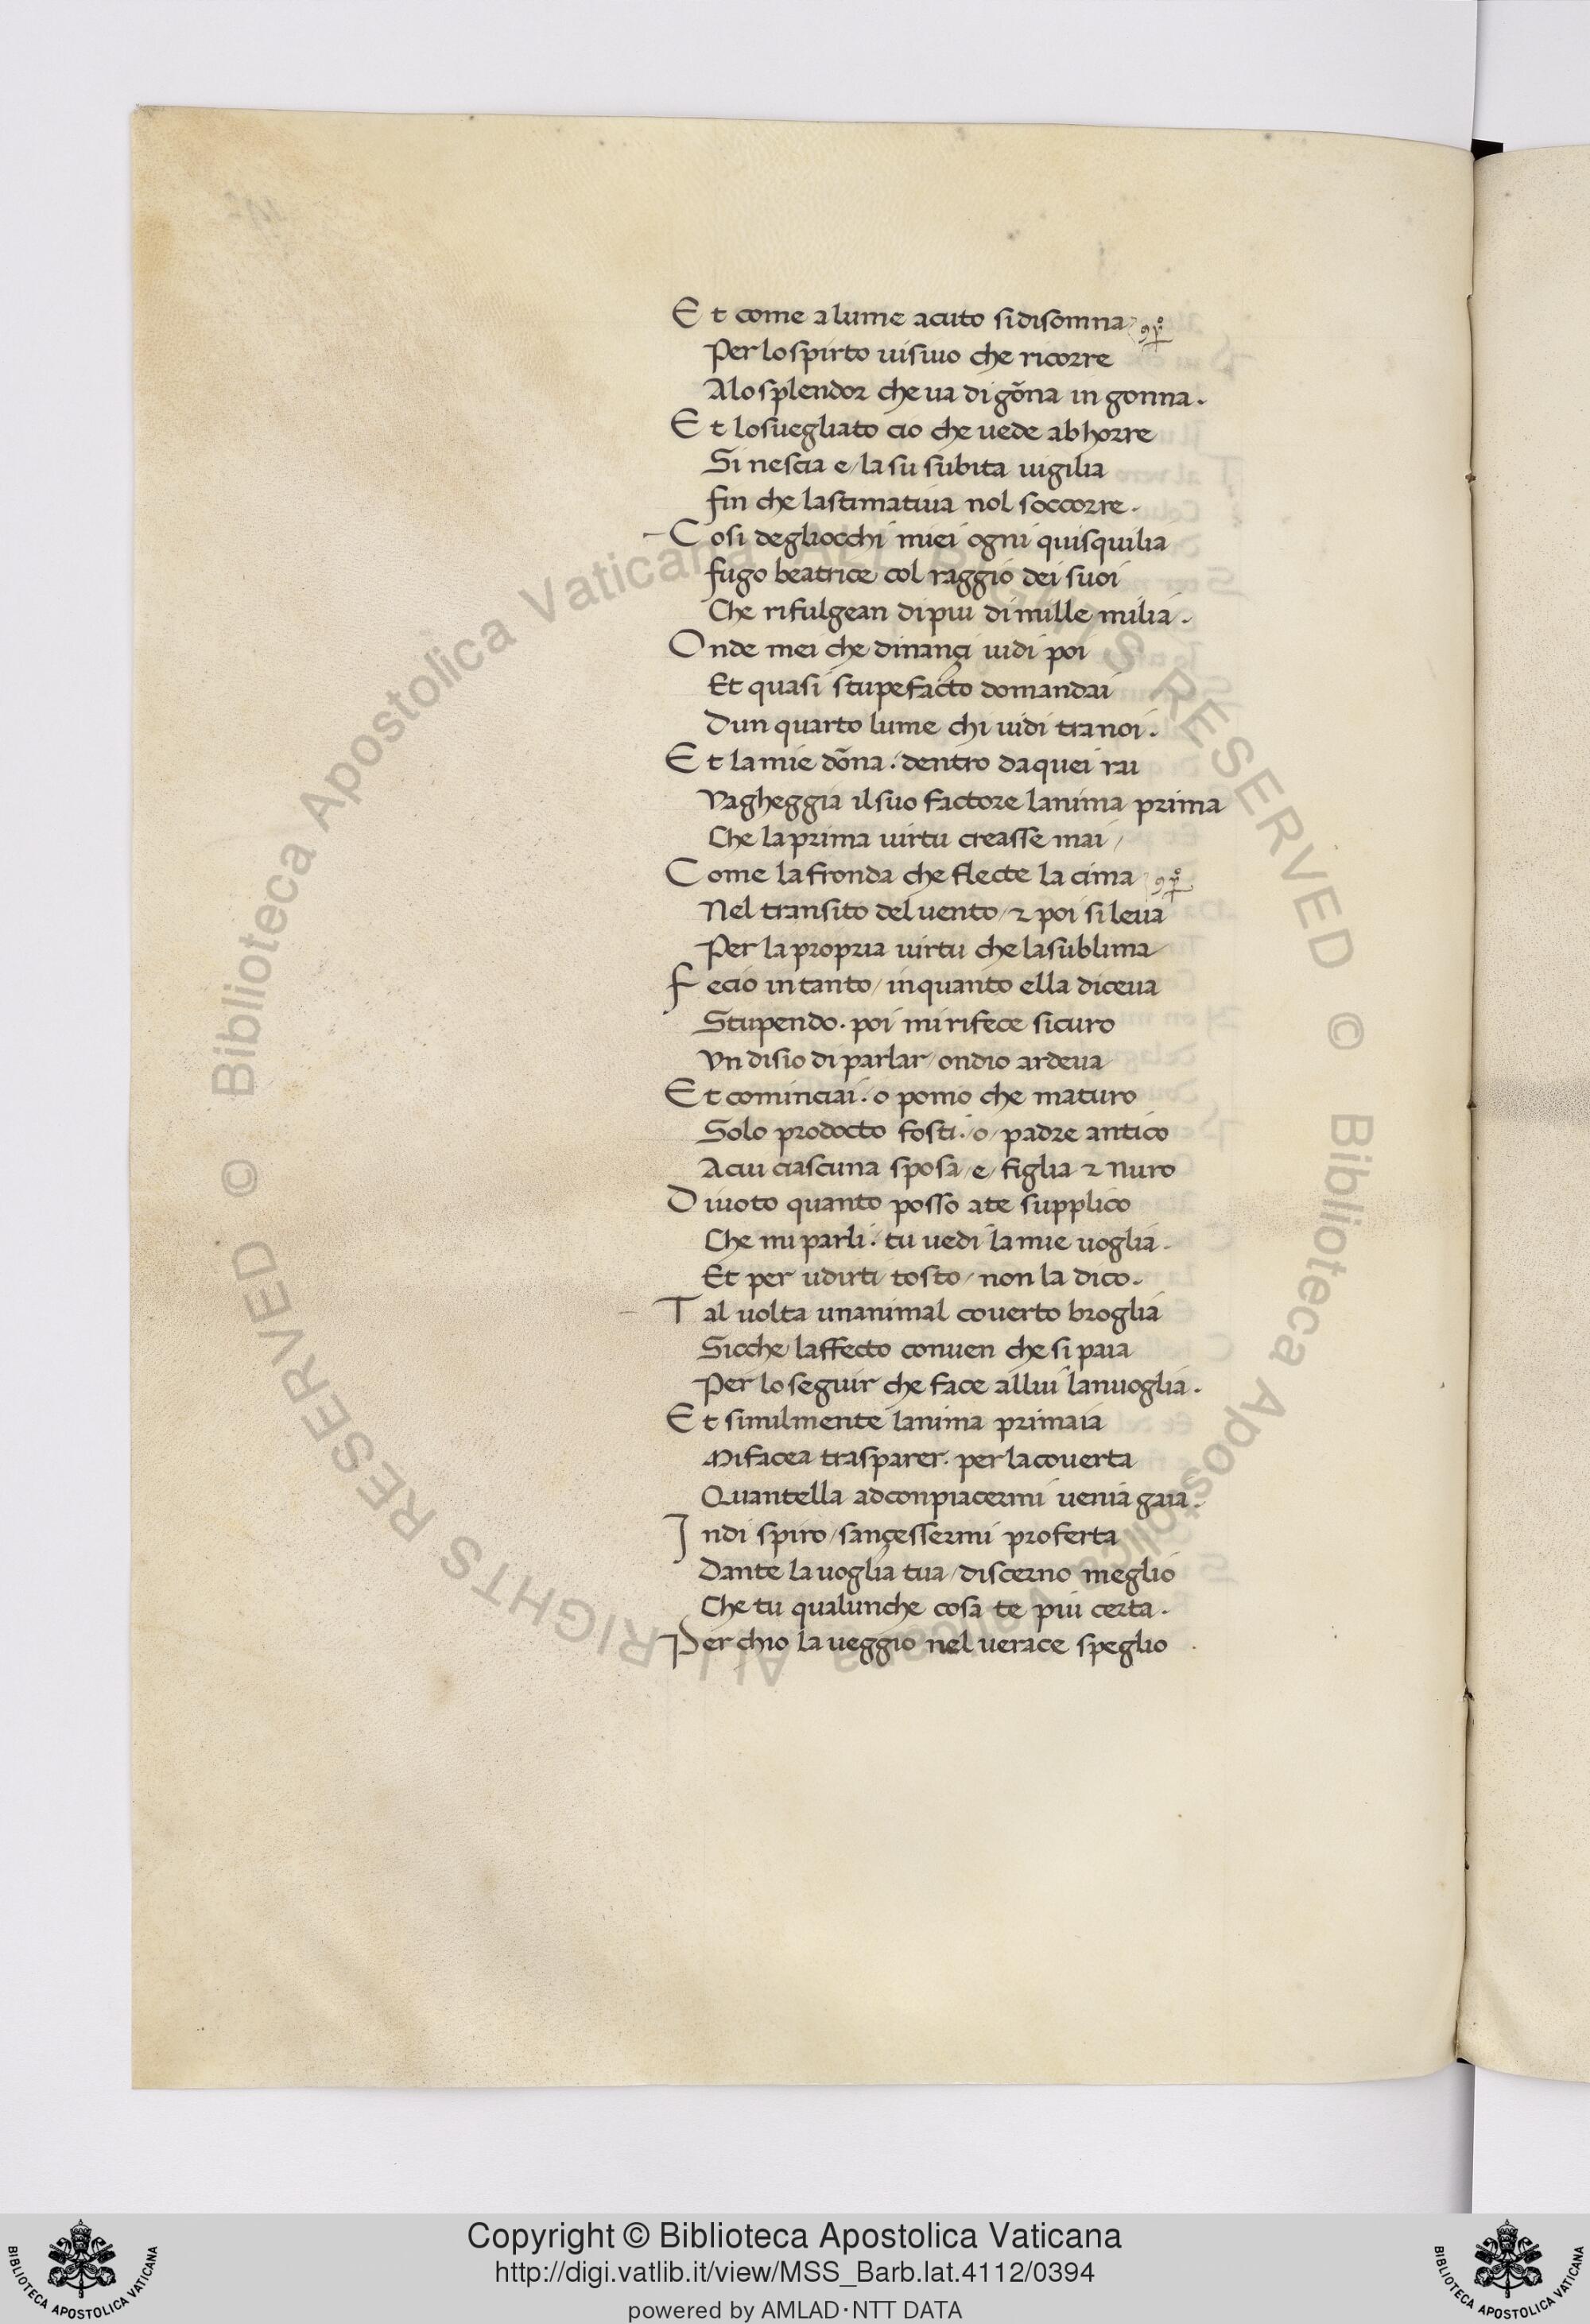 Et come a lume acuto sidisomna
Per lo spirto uisiuo che ricorre
Alo splendor che ua di gõna in gonna.
Et losuegliato cio che uede abhorre
Si nescia e/ la su subita uigilia
fin che lastimatiua nol soccorre.
Cosi degliocchi miei ogni quisquilia
fugo beatrice col raggio dei suoi
Che rifulgean dipiu di mille milia.
Onde mei che dinançi uidi poi
Et quasi stupefacto domandai
Dun quarto lume chi uidi tra noi.
Et la mie dõna. dentro da quei rai
Vagheggia il suo factore lanima prima
Che la prima uirtu creasse mai/
Come la fronda che flecte la cima
Nel transito del uento/ & poi si leua
Per la propria uirtu che la sublima
fecio in tanto/ inquanto ella diceua
Stupendo. poi mi rifece sicuro
Vn disio di parlar/ ondio ardeua
Et cominciai. o pomo che maturo
Solo prodocto fosti./o/ padre antico
Acui ciascuna sposa/ e/ figlia & nuro
Diuoto quanto posso ate supplico
Che mi parli. tu uedi la mie uoglia.
Et per udirti/ tosto/ non la dico.
Tal uolta unanimal couerto broglia
Sicche laffecto conuen che si paia
Per lo seguir che face allui lanuoglia.
Et similmente lanima primaia
Mi facea trasparer. per la couerta
Quantella adconpiacermi uenia gaia.
Indi spiro/ sançessermi proferta
Dante la uoglia tua/ discerno meglio
Che tu qualunche cosa te piu certa.
Perchio la ueggio nel uerace speglio
© Biblioteca Apostolica Vaticana ALL RIGHTS RESERVED © Biblioteca Apostolica Vaticana ALL RIGHTS RESERVED
Copyright © Biblioteca Apostolica Vaticana
http://digi.vatlib.it/view/MSS_Barb.lat.4112/0394
powered by AMLAD·NTT DATA
BIBLIOTECA APOSTOLICA VATICANA
BIBLIOTECA APOSTOLICA VATICANA